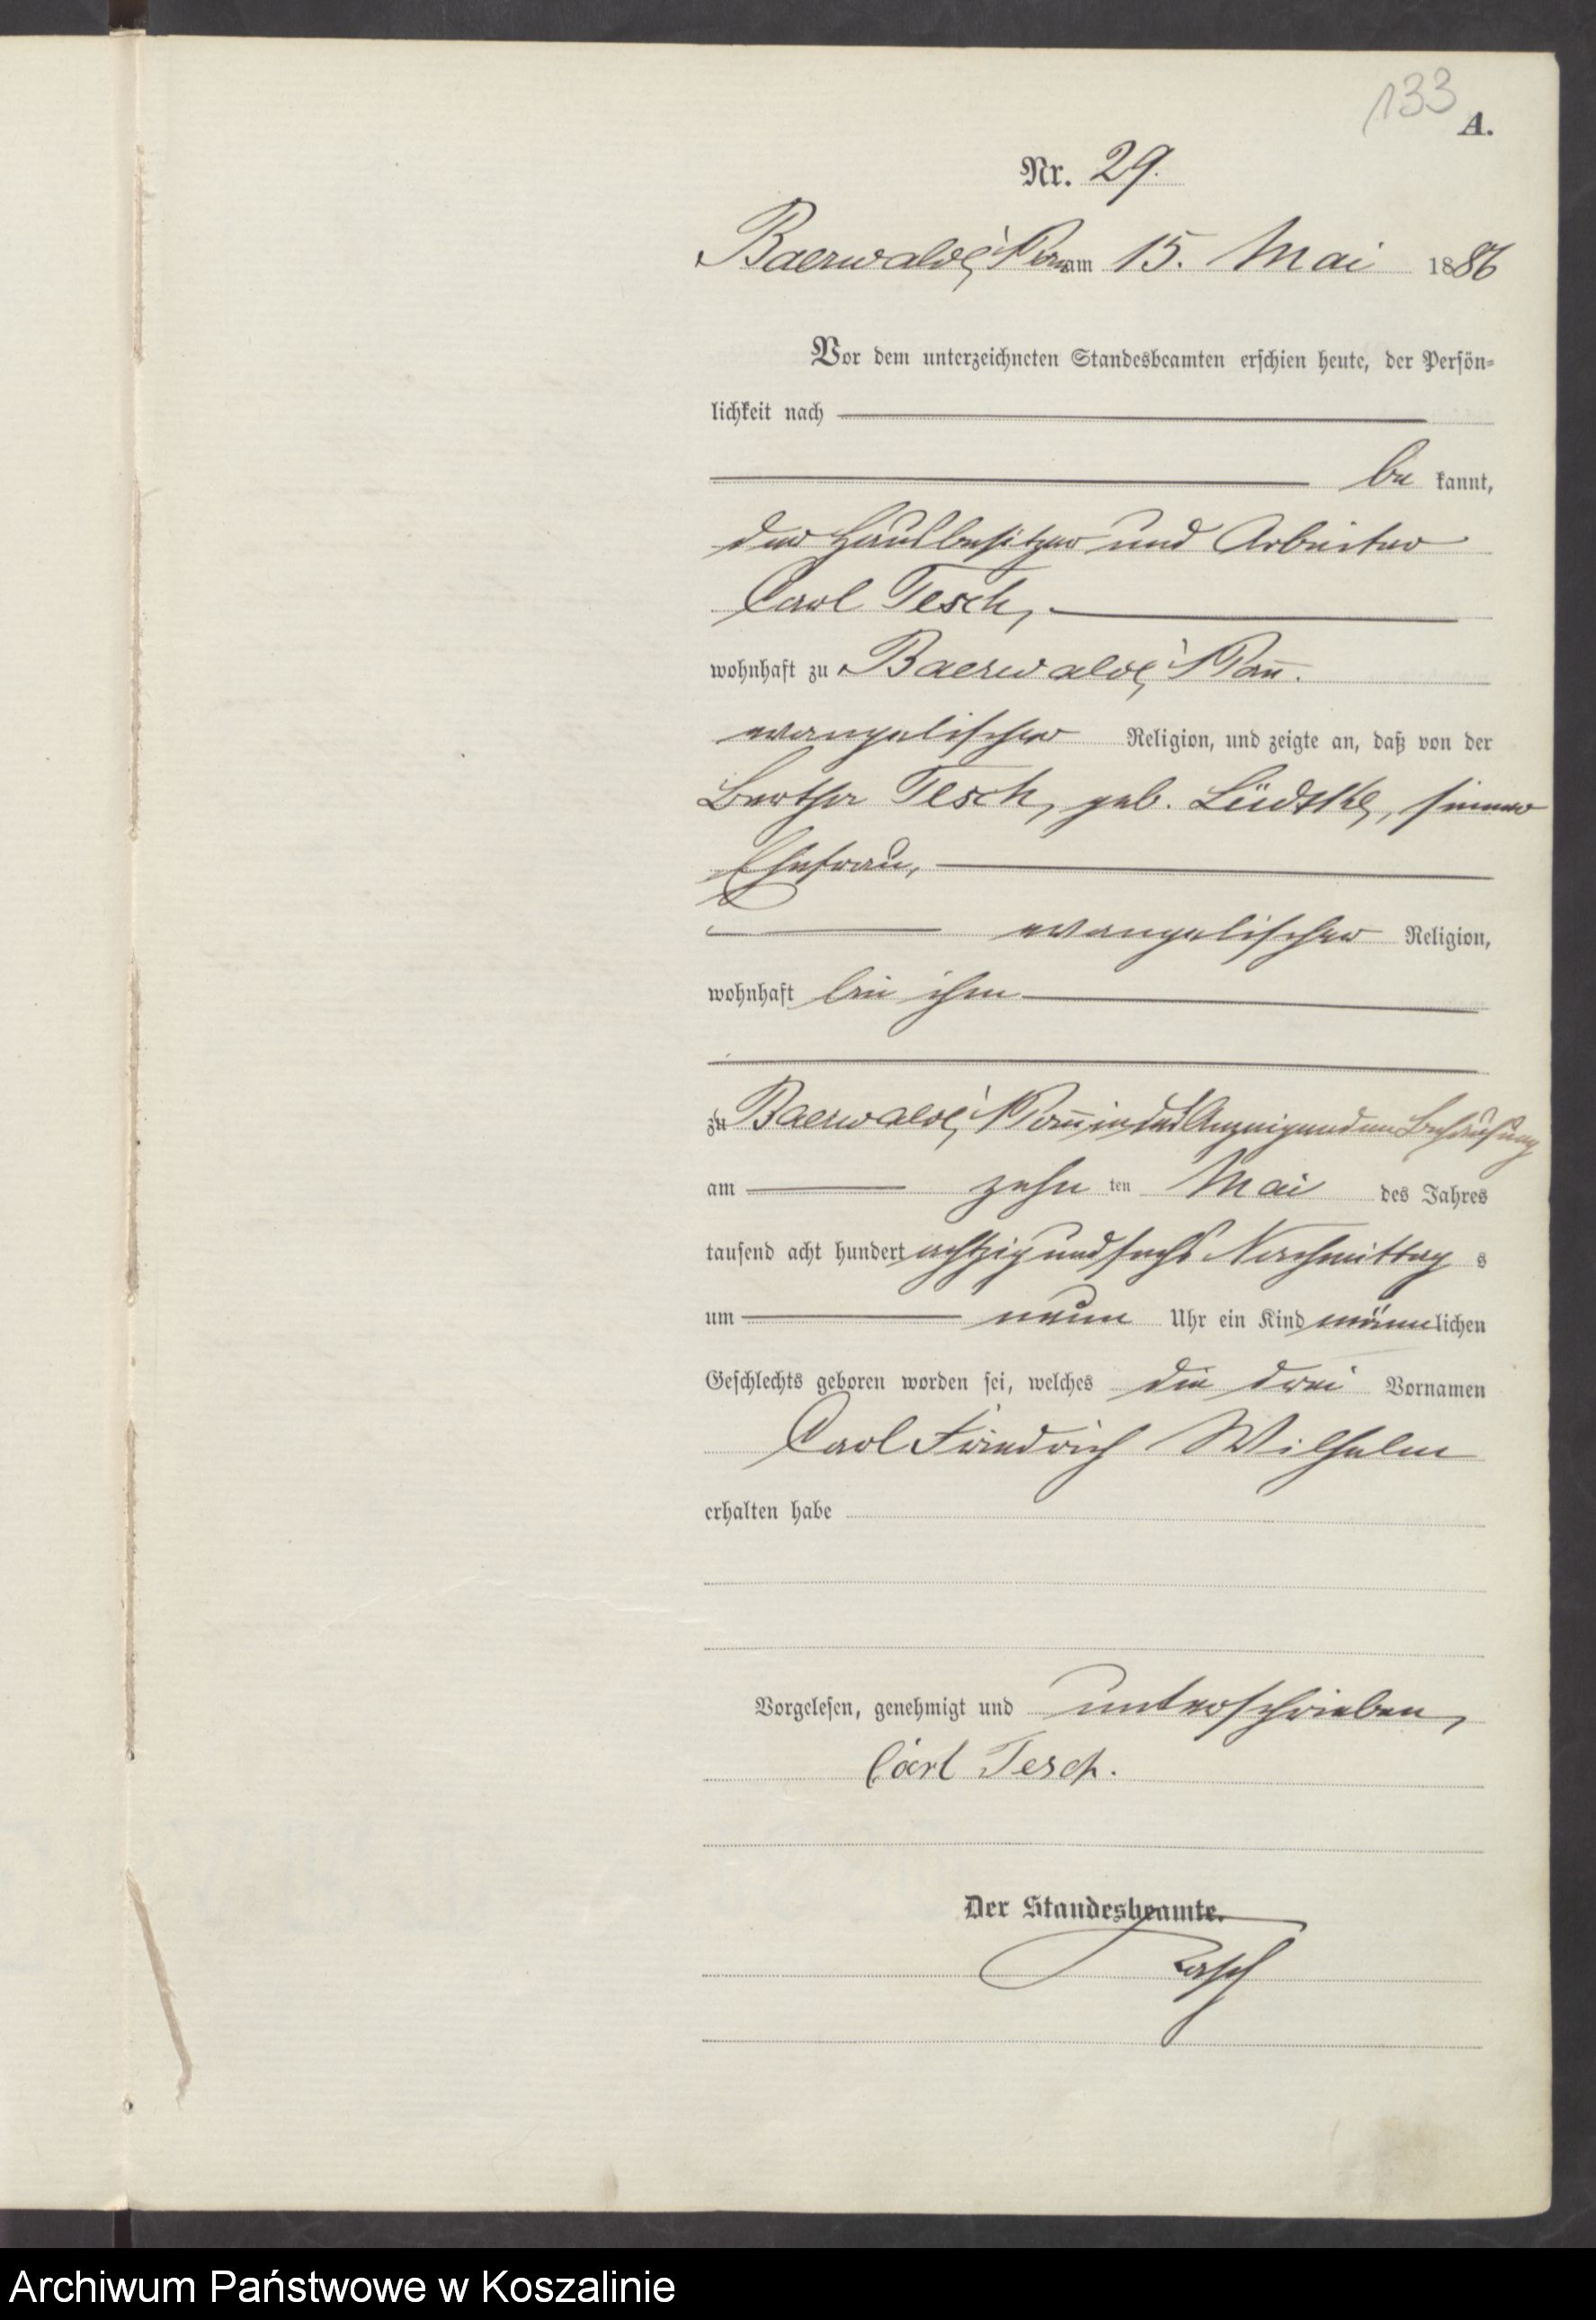 133
A.
Nr. 29.
Baerwalde, Pom am 15. Mai 1886
Vor dem unterzeichneten Standesbeamten erschien heute, der Persön-
lichkeit nach
be kannt,
der Hausbesitzer und Arbeiter
Carl Tesch,
wohnhaft zu Baerwalde, Pom̄.
evangelischer Religion, und zeigte an, daß von der
Bertha Tesch, geb. Lüdtke, seiner
Ehefrau,
evangelischer Religion,
wohnhaft bei ihm
zu Baerwalde, Pom̄, in des Anzeigenden Behausung
am zehn ten Mai des Jahres
tausend acht hundert achtzig und sechs Nachmittag s
um neun Uhr ein Kind männlichen
Geschlechts geboren worden sei, welches die drei Vornamen
Carl Friedrich Wilhelm
erhalten habe
Vorgelesen, genehmigt und unterschrieben,
Carl Tesch.
Der Standesbeamte.
Archiwum Państwowe w Koszalinie